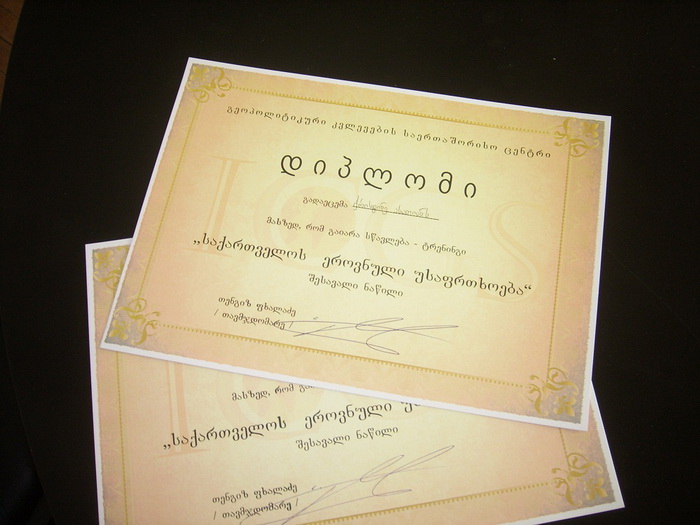 გეოპოლიტიკური კვლევების საერთაშორისო ცენტრი
დიპლომი
გადაეცემა
მასზედ, რომ გაიარა სწავლება - ტრენინგი
„საქართველოს ეროვნული უსაფრთხოება“
შესავალი ნაწილი
თენგიზ ფხალაძე
/ თავმჯდომარე /
მასზედ, რომ
„საქართველოს ეროვნული
შესავალი ნაწილი
თენგიზ ფხალაძე
/ თავმჯდომარე /